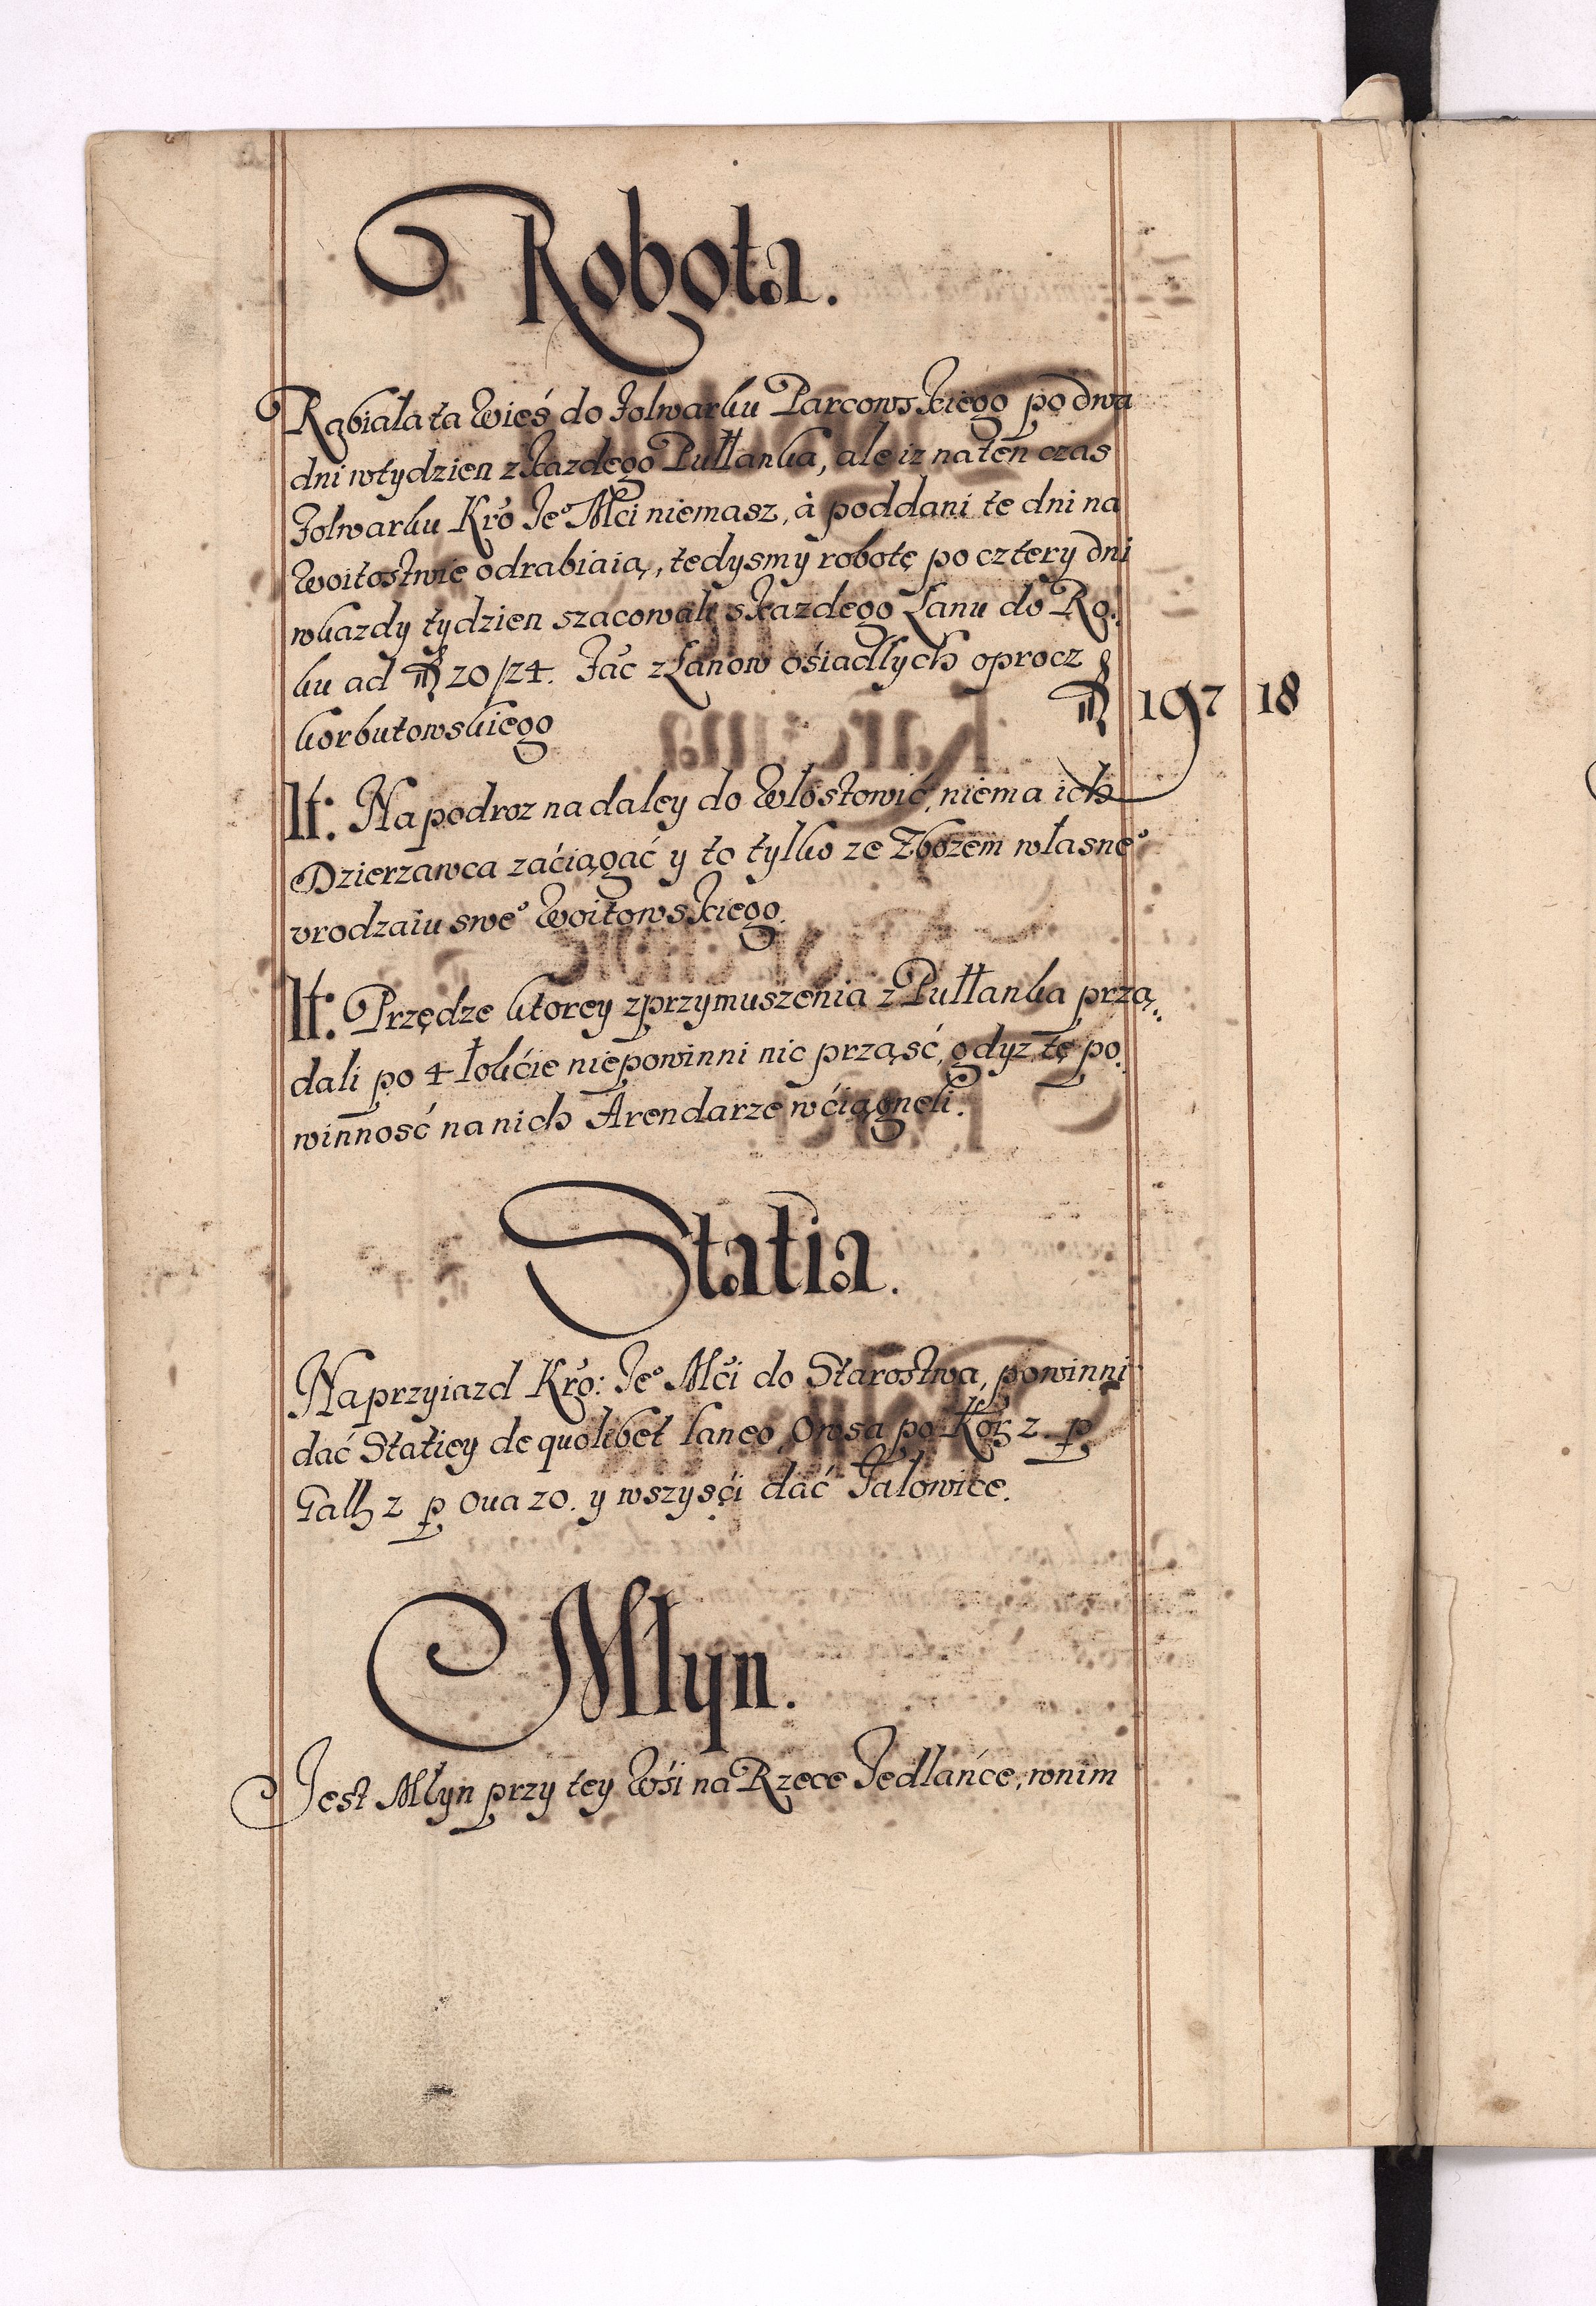 Robota.
Rąbiała ta Wieś do Folwarku Parcowskiego po dwa
dni w tydzien z każdego Pułłanka, ale iz na ten czas
Folwarku Kro Je° Mci niemasz, à poddani te dni na
Woitostwie odrabiaią, tedysmy robotę po cztery dni
w kazdy tydzien szacowali s kazdego Łanu do Ro:
ku ad 20/24. Fac z Łanow ośiadłych oprocz
korbutowskiego 197 18
It: Na podroz nadaley do Włostowić, niema ich
Dzierzawca záciągać y to tylko ze Zbozem własne°
vrodzaiu swe° Woitowskiego.
It: Przędze ktorey z przymuszenia z Pułłanka przą:
dali po 4 łokćie niepowinni nic prząść, gdyz tę po:
winność na nich Arendarze wćiągneli.
Statia.
Na przyiazd Kro: Je° Mći do Starostwa, powinni
dać Statiey de quolibet laneo, Owsa po Kor z p
Gall z p Oua 20. y wszysći dać Jałowice.
Młyn.
Jest Młyn przy tey Wśi na Rzece Jedlańce, w nim